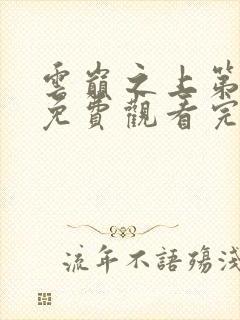 雲巔之上第
免費觀看完
流年不語殤淺